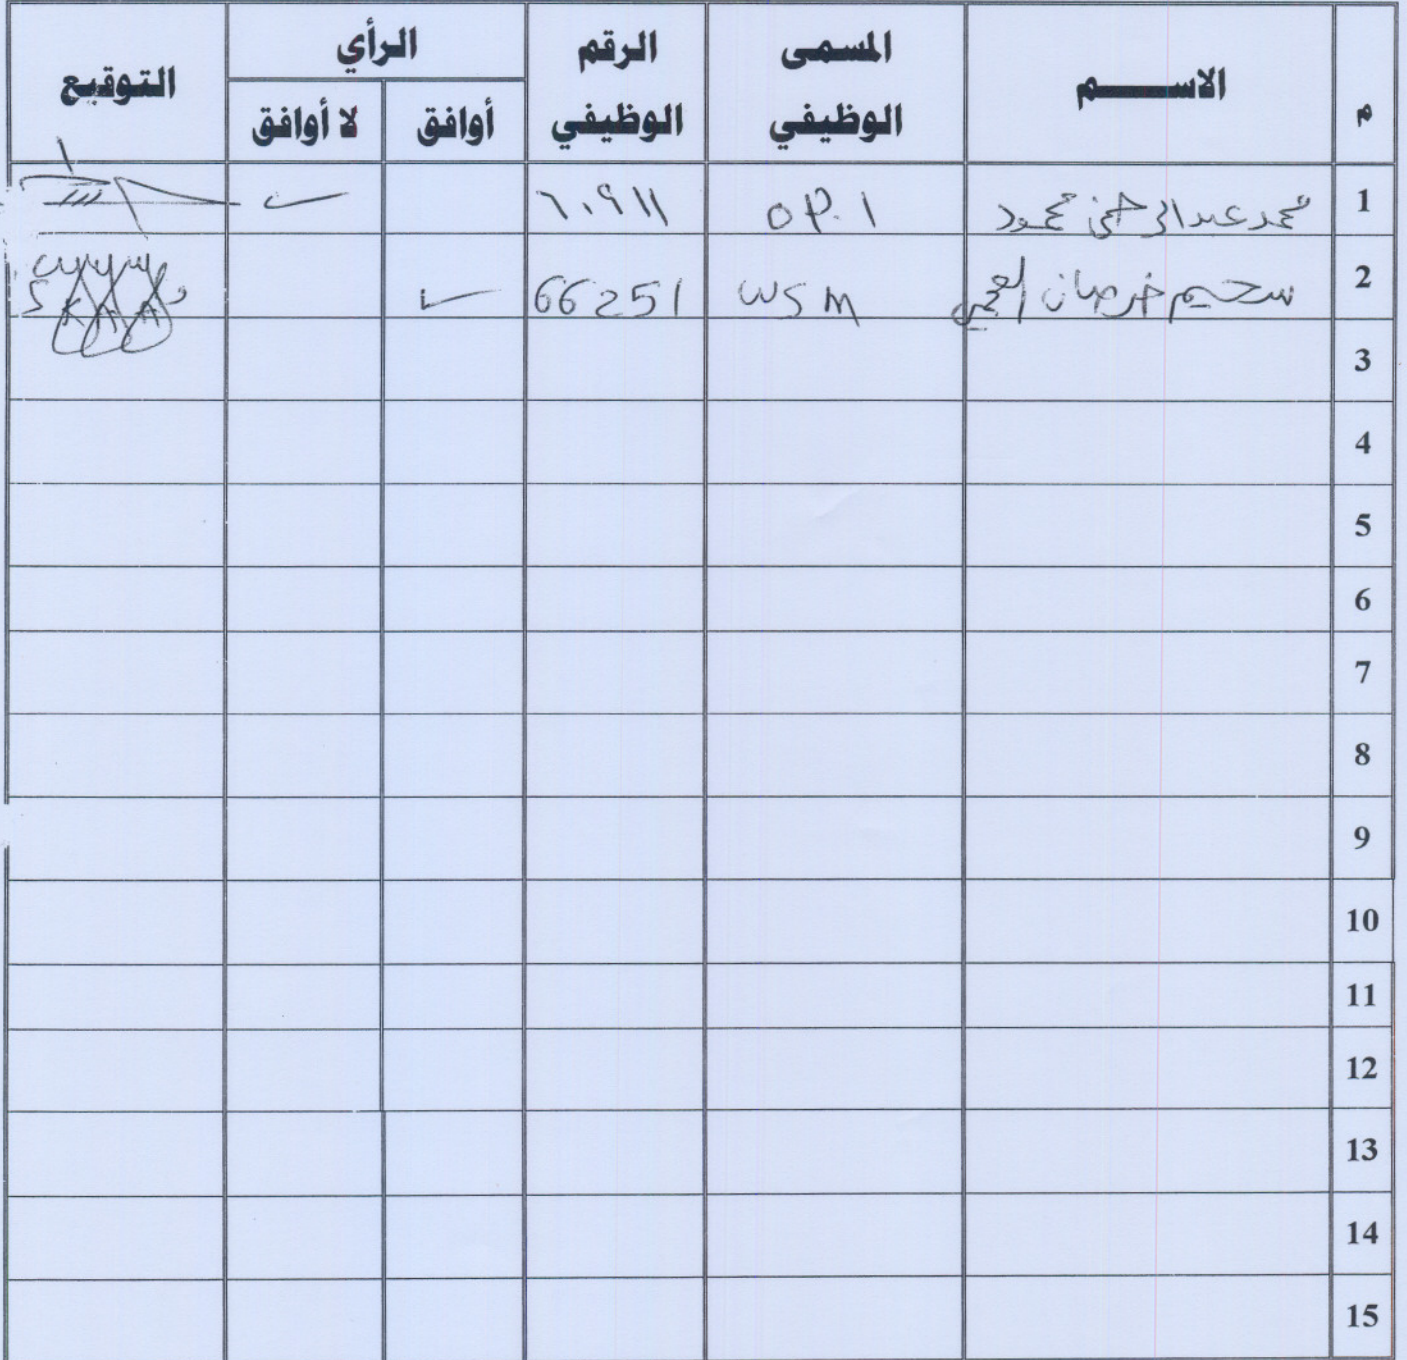 م الاســـــم المسمى الوظيفي الرقم الوظيفي الرأي التوقيع
أوافق لا أوافق
1 محمد عبدالرحمن محمود OP.1 ٦٠٩١١ ✓
2 سحيم خرصان 66251 WSM ✓
3
4
5
6
7
8
9
10
11
12
13
14
15